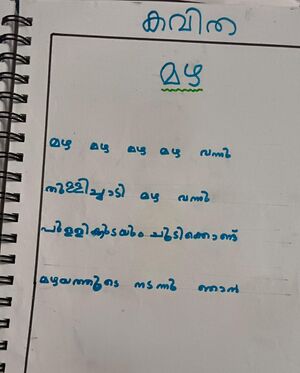 കവിത
മഴ
മഴ മഴ മഴ മഴ വന്നു
തുള്ളിച്ചാടി മഴ വന്നു
പുള്ളിക്കുടയും ചൂടിക്കൊണ്ട്
മഴയത്തൂടെ നടന്നു ഞാൻ